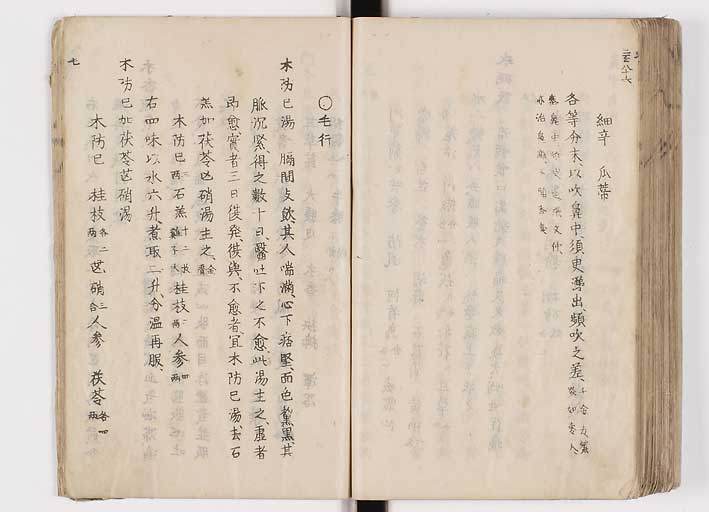 細辛 瓜蒂
各等分末以吹鼻中須更涕出頻吹之差
〇毛行
木防已湯 膈間支飲其人喘滿心下痞堅面色黧黒其
脈沉緊得之數十日醫吐下之不愈此湯主之虚者
即愈實者三日復発復與不愈者宜木防已湯去石
羔加茯苓芒硝湯主之
木防已三兩石羔十二枚雞子大桂枝二兩人参四兩
右四味以水六升煮取二升分温再服
木防已加茯苓芒硝湯
木防已 桂枝各二兩芒硝三合人参 茯苓各四兩
七